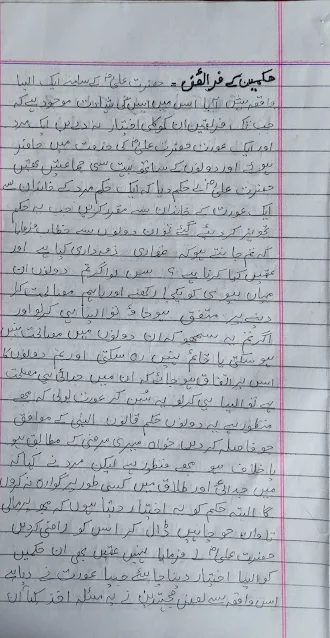 حکمین کے فرائض = حضرت علیؓ کے سامنے ایک ایسا
واقعہ پیش آیا اس میں اس کی موجود ہے کہ
جب تک فریقین ان کو کلی اختیار نہ دے دیں ایک مرد
اور ایک عورت حضرت علیؓ کی خدمت میں حاضر
ہوئے اور دونوں کے ساتھ بہت سی جماعتیں تھیں
حضرت علیؓ نے حکم دیا کہ ایک حکم مرد کے خاندان سے
ایک عورت کے خاندان سے مقرر کریں جب یہ حکم
تجویز کر دیئے گئے تو ان دونوں سے خطاب فرمایا
کہ تم جانتے ہو کہ تمہاری ذمہ داری کیا ہے اور
تمہیں کیا کرنا ہے؟ سن لو اگر تم دونوں ان
میاں بیوی کو یکجا رکھنے اور باہم مصالحت کرا
دینے پر متفق ہو جاؤ تو ایسا ہی کر لو اور
اگر تم یہ سمجھو کہ ان دونوں میں مصالحت نہیں
ہو سکتی یا قائم نہیں رہ سکتی اور تم دونوں کا
اس پر اتفاق ہو جائے کہ ان میں جدائی ہی مصلحت
ہے تو ایسا ہی کر لو یہ سن کر عورت بولی کہ مجھے
منظور ہے یہ دونوں حکم قانون الہی کے موافق
جو فیصلہ کر دیں خواہ میری مرضی کے مطابق ہو
یا خلاف ہو مجھے منظور ہے لیکن مرد نے کہا کہ
میں جدائی اور طلاق میں کسی طور پر گوارہ نہ کروں
گا البتہ حکم کو یہ اختیار دیتا ہوں کہ مجھ پر مالی
تاوان جو چاہیں ڈال کر اس کو راضی کر دیں
حضرت علیؓ نے فرمایا نہیں تمہیں بھی ان حکمین
کو ایسا اختیار دینا چاہیئے جیسا عورت نے دیا ہے
اس واقعہ سے بعض مجتہدین نے یہ مسئلہ اخذ کیا ان